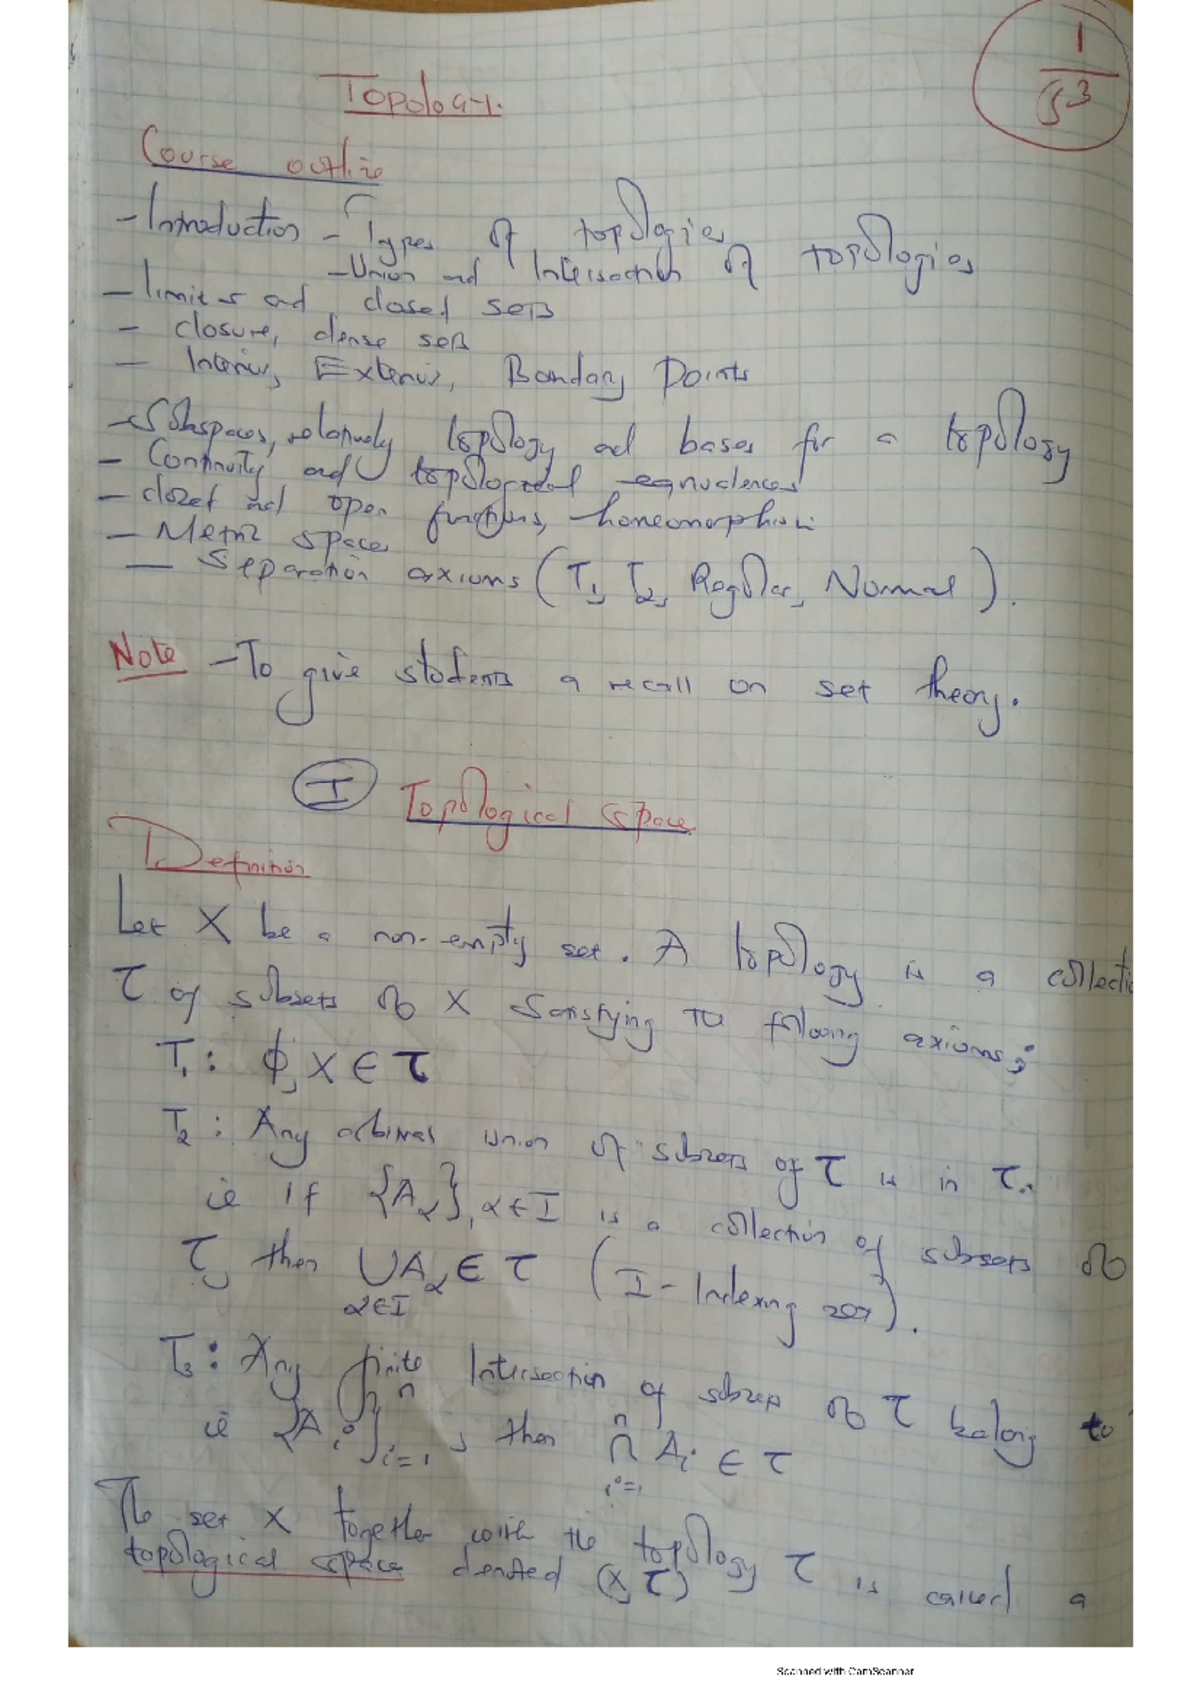 1
53
Topology.
Course outline
- Introduction - Types of topologies
- Union and Intersection of topologies
- limits and closed sets
- closure, dense sets
- Interior, Exterior, Boundary Points
- Subspaces, relatively topology and bases for a topology
- Continuity and topological equivalences
- closed and open functions, homeomorphism
- Metric spaces
- Separation axioms (T₁, T₂, Regular, Normal).
Note - To give students a recall on set theory.
I Topological space
Definition
Let X be a non-empty set. A topology is a collectio
τ of subsets of X satisfying the following axioms;
T₁: ϕ, X ∈ τ
T₂: Any arbitrary union of subsets of τ is in τ.
ie if {A_α}, α∈I is a collection of subsets of
τ, then ∪A_α ∈ τ (I - Indexing set).
α∈I
T₃: Any finite Intersection of subsets of τ belong to
ie {A_i}ⁿ_{i=1}, then ⁿ∩_{i=1} A_i ∈ τ
The set X together with the topology τ is called a
topological space denoted (X, τ)
Scanned with CamScanner